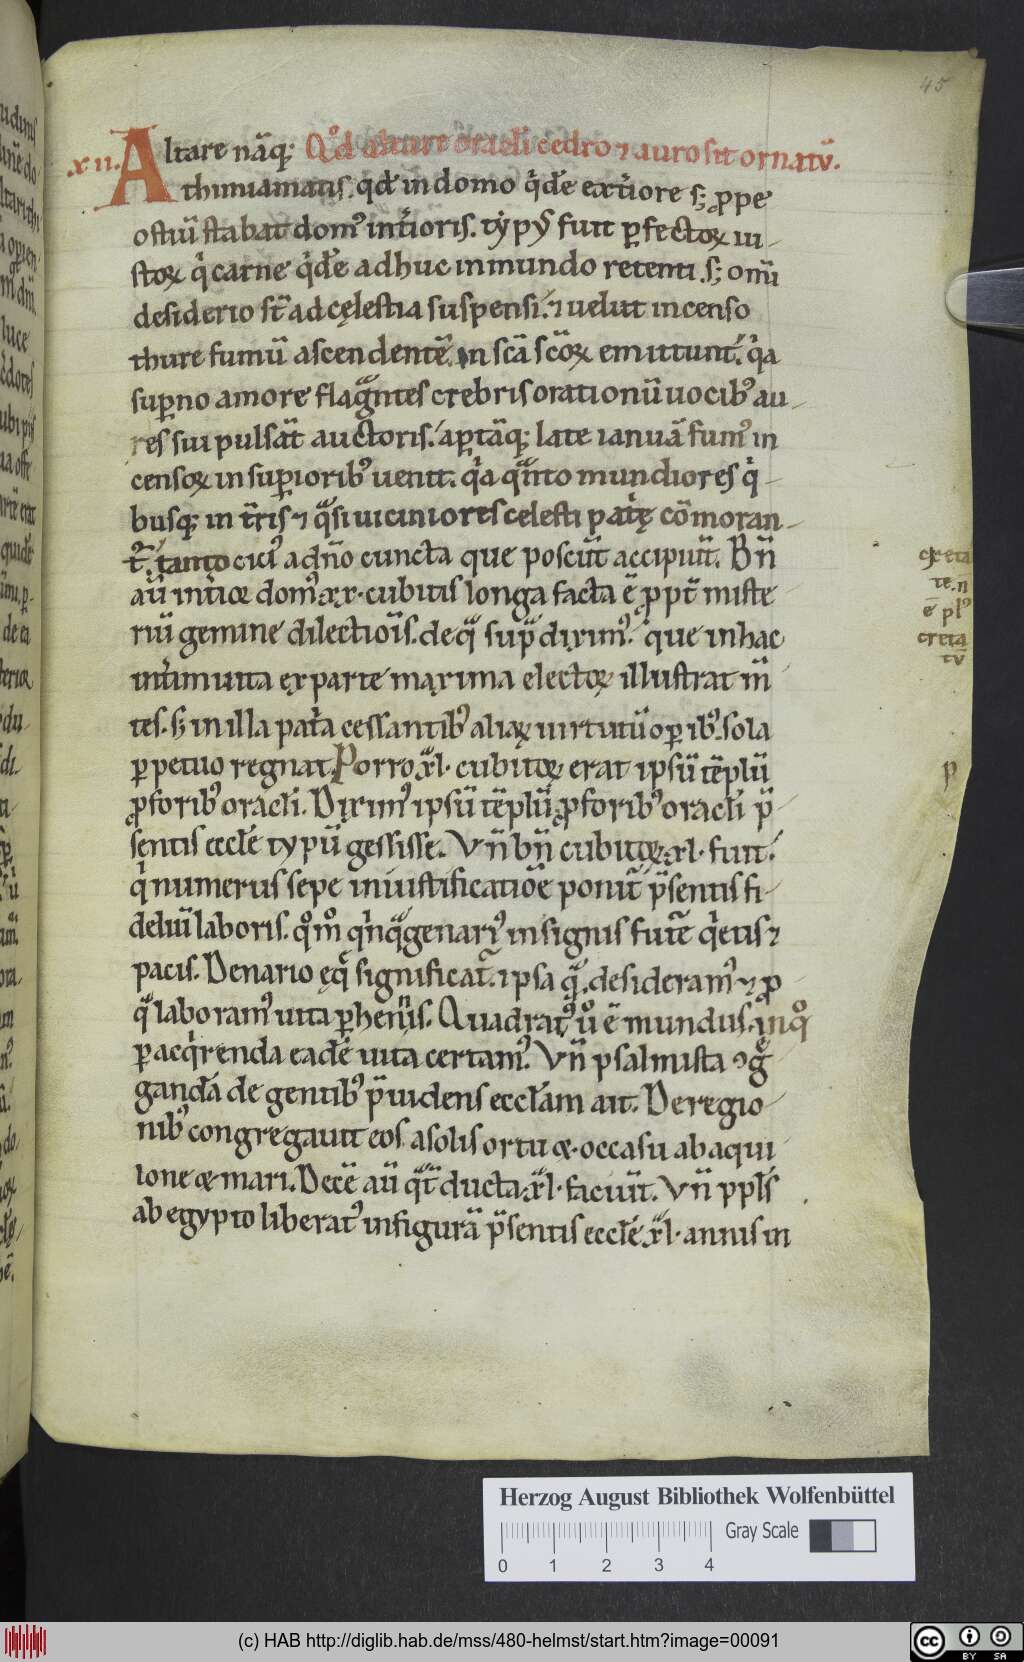 45
xii. Altare nāq; Qd̊ altare oracli cedro ⁊ auro sit ornatū.
thimiamatis. qd̄ in domo q̇dē ext̓iore s; ꝓpe
ostiū stabat domꝰ int̓ioris. tẏpꝰ fuit ꝑfectoꝝ iu-
stoꝝ q̇ carne q̇dē adhuc in mundo retenti. s; om̄i
desiderio st̄ ad cęlestia suspensi. ⁊ uelut incenso
thure fumū ascendentē. in sc̄a sc̄oꝝ emittunt. q̇a
suꝑno amore flagᵃntes crebris orationū uocibꝰ au-
res sui pulsāt auctoris. aꝑtāq; late ianuā fumꝰ in
censoꝝ in suꝑioribꝰ uenit. q̇a qᵃnto mundiores q̇-
busq; in t̄ris ⁊ qᵃsi uiciniores celesti pat̓ę cōmoran-
t̄. tanto ciciꝰ a dn̄o cuncta que poscūt accipiūt. Bn̄
aū int̓ioꝛ domꝰ xx. cubitis longa facta ē ꝓpt̄ miste-
riū gemine dilectiōis. de q̄ sup̄ diximꝰ. que in hac
intim uita ex parte maxima electoꝝ illustrat m̄-
tes. s; in illa pat̓a cessantibꝰ aliaꝝ uirtutū oꝑibꝰ. sola
ꝑpetuo regnat. Porro xᵃl. cubitoꝝ erat ipsū tēplū
ꝓ foribꝰ oracli. Diximꝰ ipsū tēplū ꝓ foribꝰ oracli p̄-
sentis eccłe typū gessisse. Vn̄ bn̄ cubitoꝝ xl. fuit.
q̇ numerus sepe in iustificatiōe ponit̄ p̄sentis fi-
deliū laboris. qͦmͦ q̇nqᵃgenariꝰ insignis futurę q̇etis ⁊
pacis. Denario eq̇ significat̄. ipsa qᵃ. desideramꝰ ⁊ ꝓ
qᵃ laboramꝰ uita ꝑhennis. Quadratꝰ uͦ ē mundus. in qͦ
ꝑ acq̇renda eadē uita certamꝰ. Vn̄ psalmista ꝯgͤ-
gandā de gentibꝰ p̄uidens eccłam ait. De regio-
nibꝰ congregauit eos. a solis ortu & occasu ab aqui-
lone & mari. Decē aū qᵃt̄ ducta xᵃl. faciūt. Vn̄ ppłs
ab egypto liberatꝰ in figurā p̄sentis eccłe xᵃl. annis in
creta
te. n
ē plꝰ
creta
tū
p
Herzog August Bibliothek Wolfenbüttel
Gray Scale
0 1 2 3 4
(c) HAB http://diglib.hab.de/mss/480-helmst/start.htm?image=00091
cc BY SA